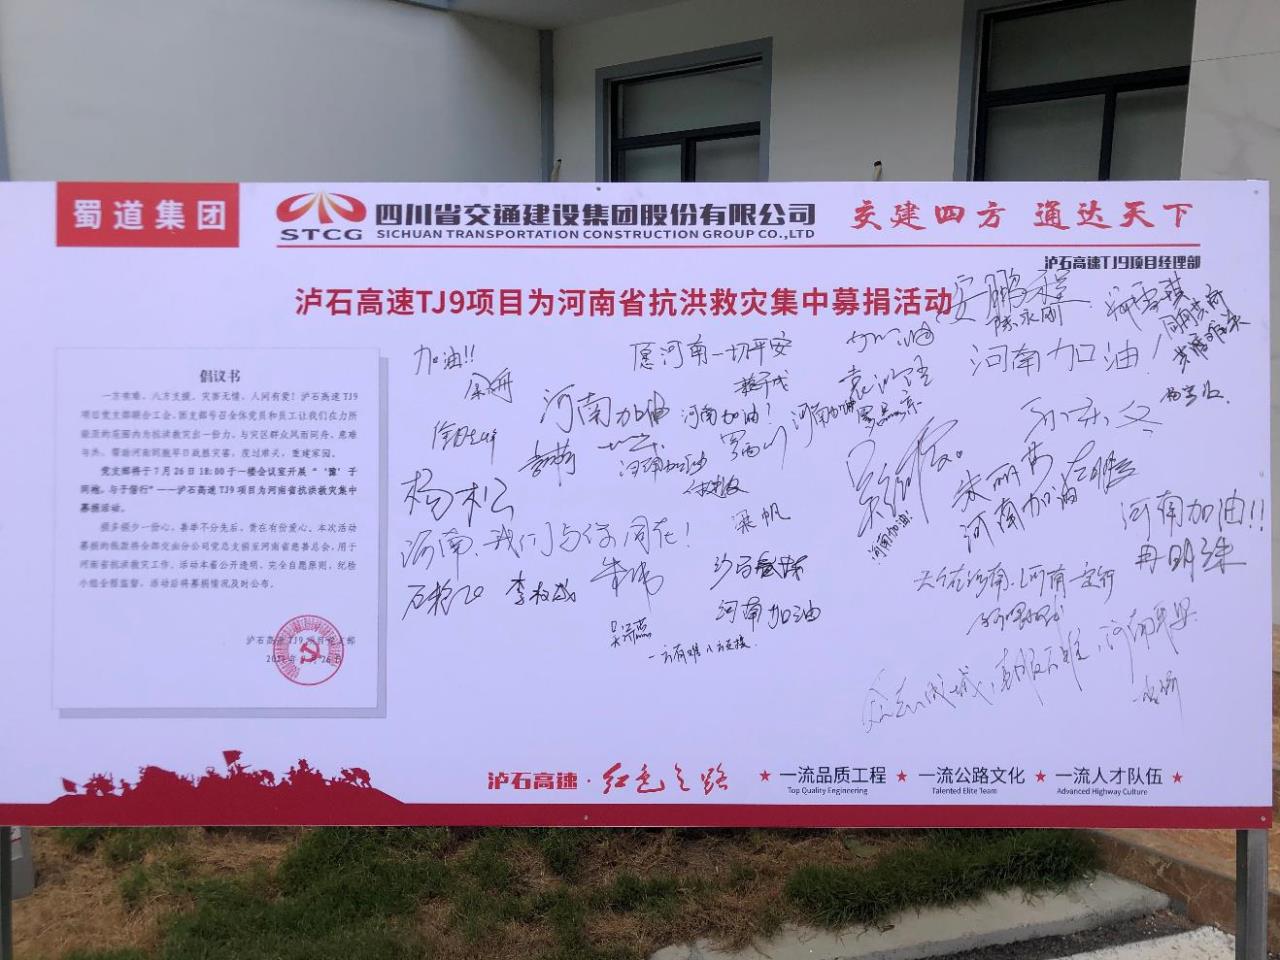 蜀道集团
STCG
四川省交通建设集团股份有限公司
SICHUAN TRANSPORTATION CONSTRUCTION GROUP CO.,LTD
交建四方 通达天下
泸石高速TJ9项目经理部
泸石高速TJ9项目为河南省抗洪救灾集中募捐活动
倡议书
一方有难、八方支援，灾害无情、人间有爱！泸石高速TJ9
项目党支部联合工会、团支部号召全体党员和员工让我们在力所
能及的范围内为抗洪救灾出一份力，与灾区群众风雨同舟、患难
与共，帮助河南同胞早日战胜灾害，度过难关，重建家园。
党支部将于7月26日18:00于一楼会议室开展“‘豫’子
同袍，与子偕行”——泸石高速TJ9项目为河南省抗洪救灾集中
募捐活动。
捐多捐少一份心，善举不分先后，贵在有份爱心。本次活动
募捐的钱款将全部交由分公司党总支捐至河南省慈善总会，用于
河南省抗洪救灾工作。活动本着公开透明、完全自愿原则，纪检
小组全程监督，活动后将募捐情况及时公布。
泸石高速TJ9项目党支部
加油!!
愿河南一切平安
加油
安鹏程
陈永刚
河南加油!
河南加油
河南加油!
河南加油
杨松
河南加油
梁帆
河南加油!
朱丽萍
河南加油
河南加油!!
冉明珠
河南,我们与你同在!
李权威
朱伟
河南加油
一方有难八方支援.
泸石高速·红色之路
★ 一流品质工程 ★ 一流公路文化 ★ 一流人才队伍 ★
Top Quality Engineering Talented Elite Team Advanced Highway Culture